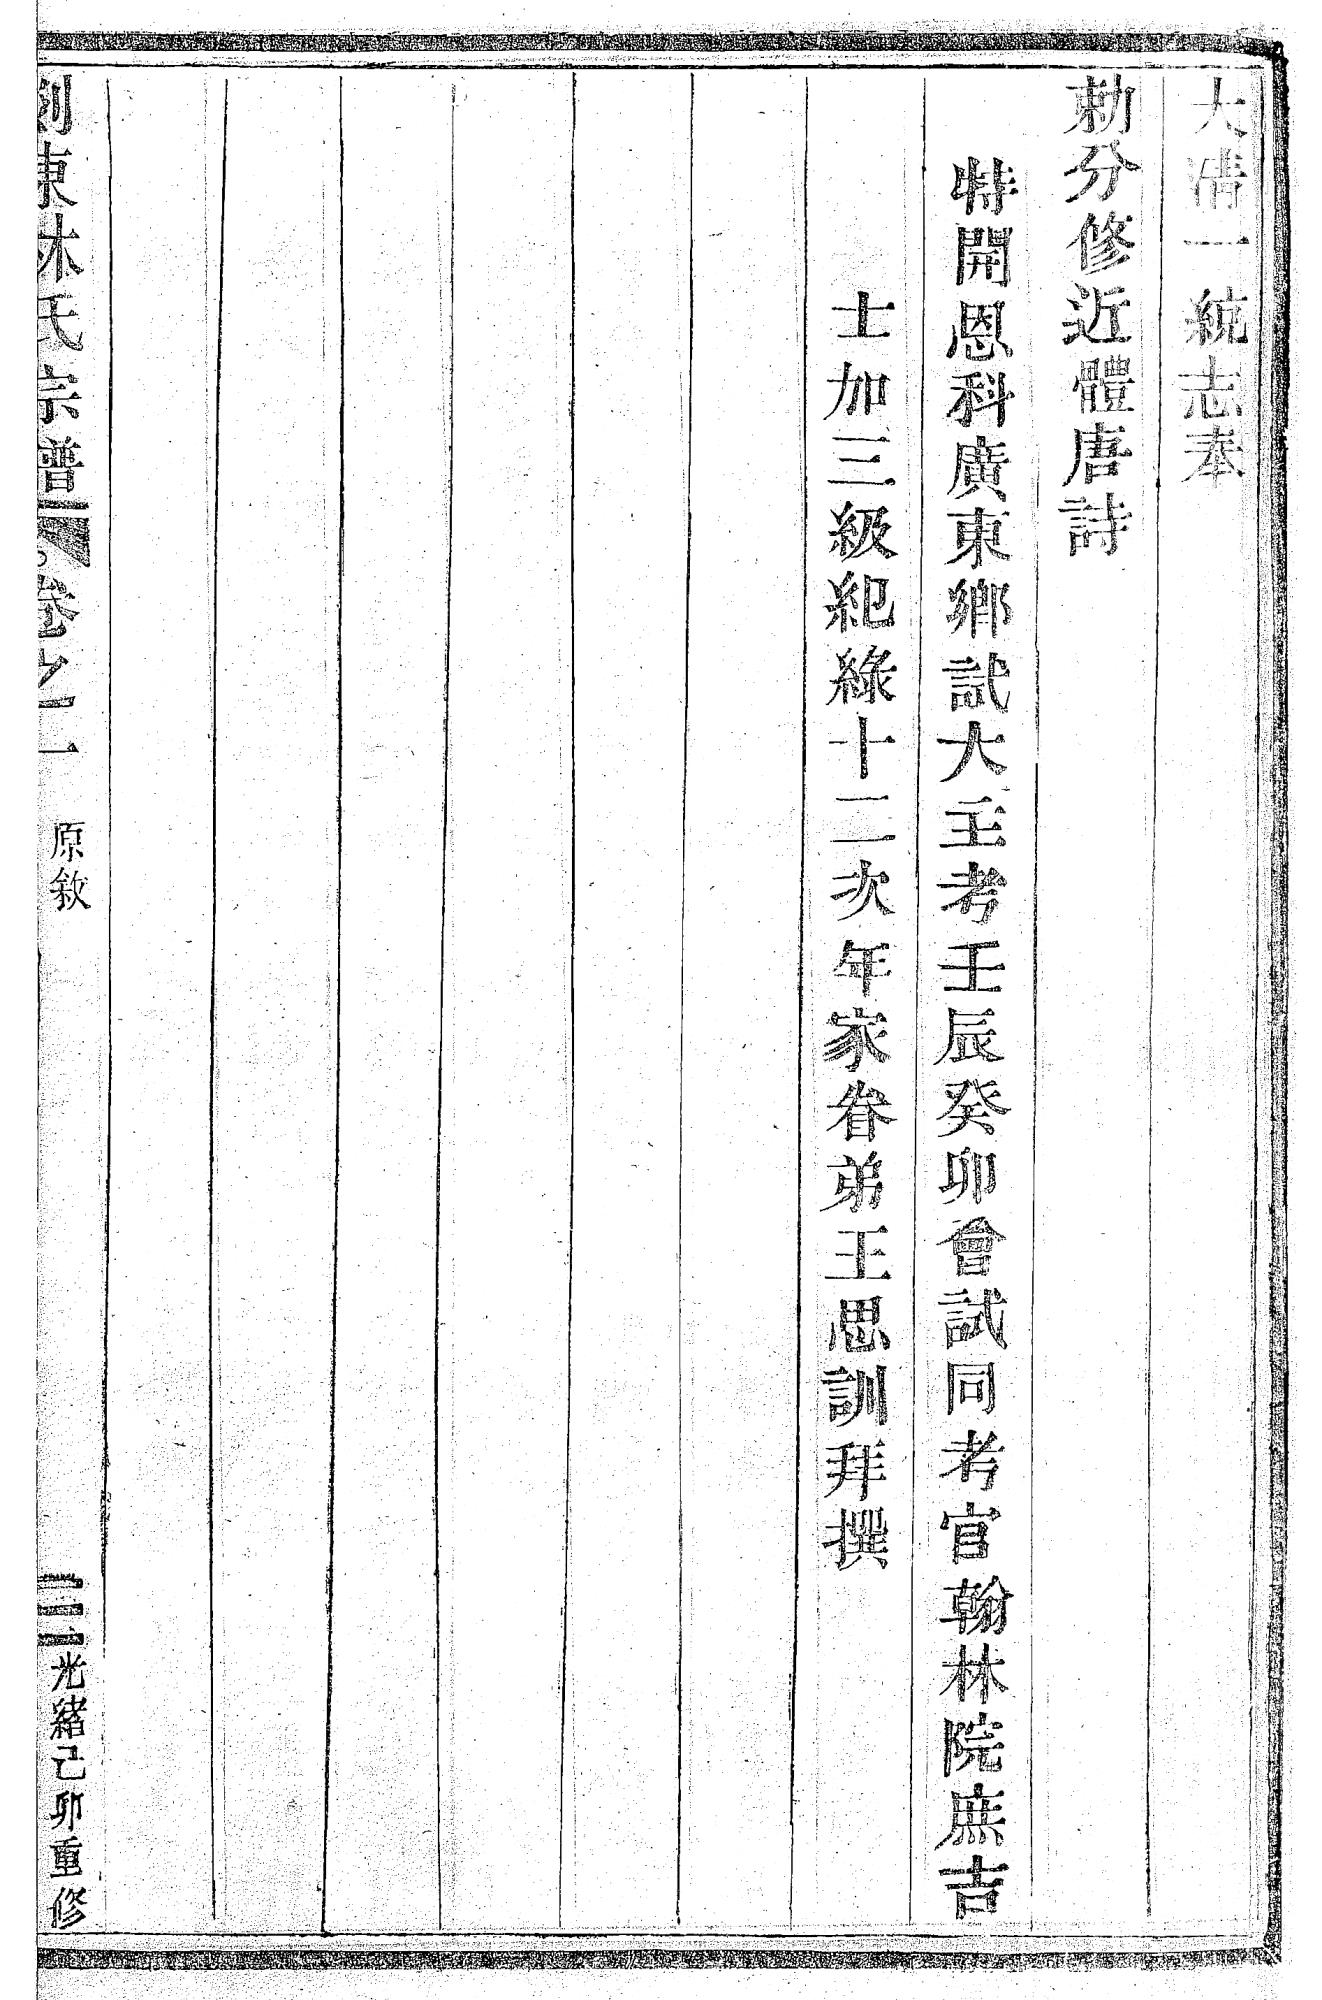 大清一統志奉
勅分修近體唐詩
特開恩科廣東鄉試大主考壬辰癸卯會試同考官翰林院庶吉
士加三級紀綠十二次年家眷弟王思訓拜撰
剡東林氏宗譜 卷之一 原敘 三 光緒己卯重修